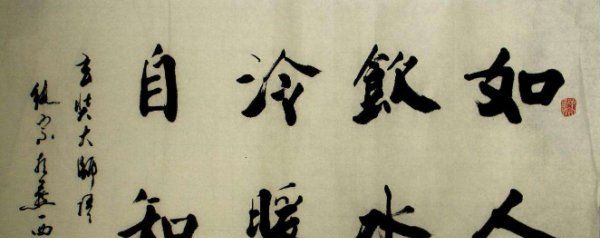 如人
飲水
冷暖
自知
玄奘大師
西